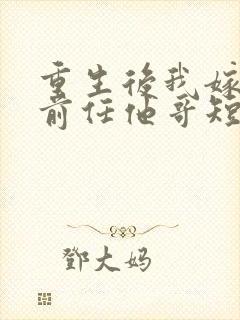 重生後我嫁
前任他哥短
鄧大妈